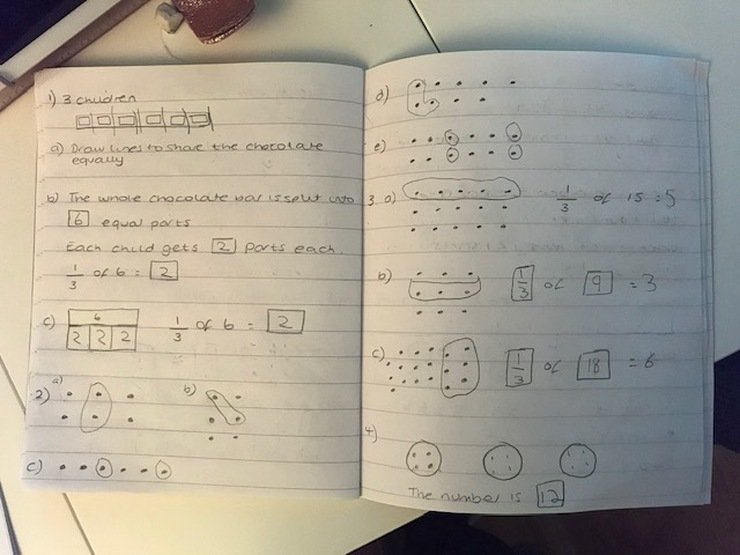 1) 3 children
a) Draw lines to share the chocolate
equally
b) The whole chocolate bar is split into
6 equal parts
Each child gets 2 parts each.
1/3 of 6 = 2
c) 6
2 2 2
1/3 of 6 = 2
2) a)
b)
c)
d)
e)
3. a) 1/3 of 15 = 5
b) 1/3 of 9 = 3
c) 1/3 of 18 = 6
4)
The number is 12